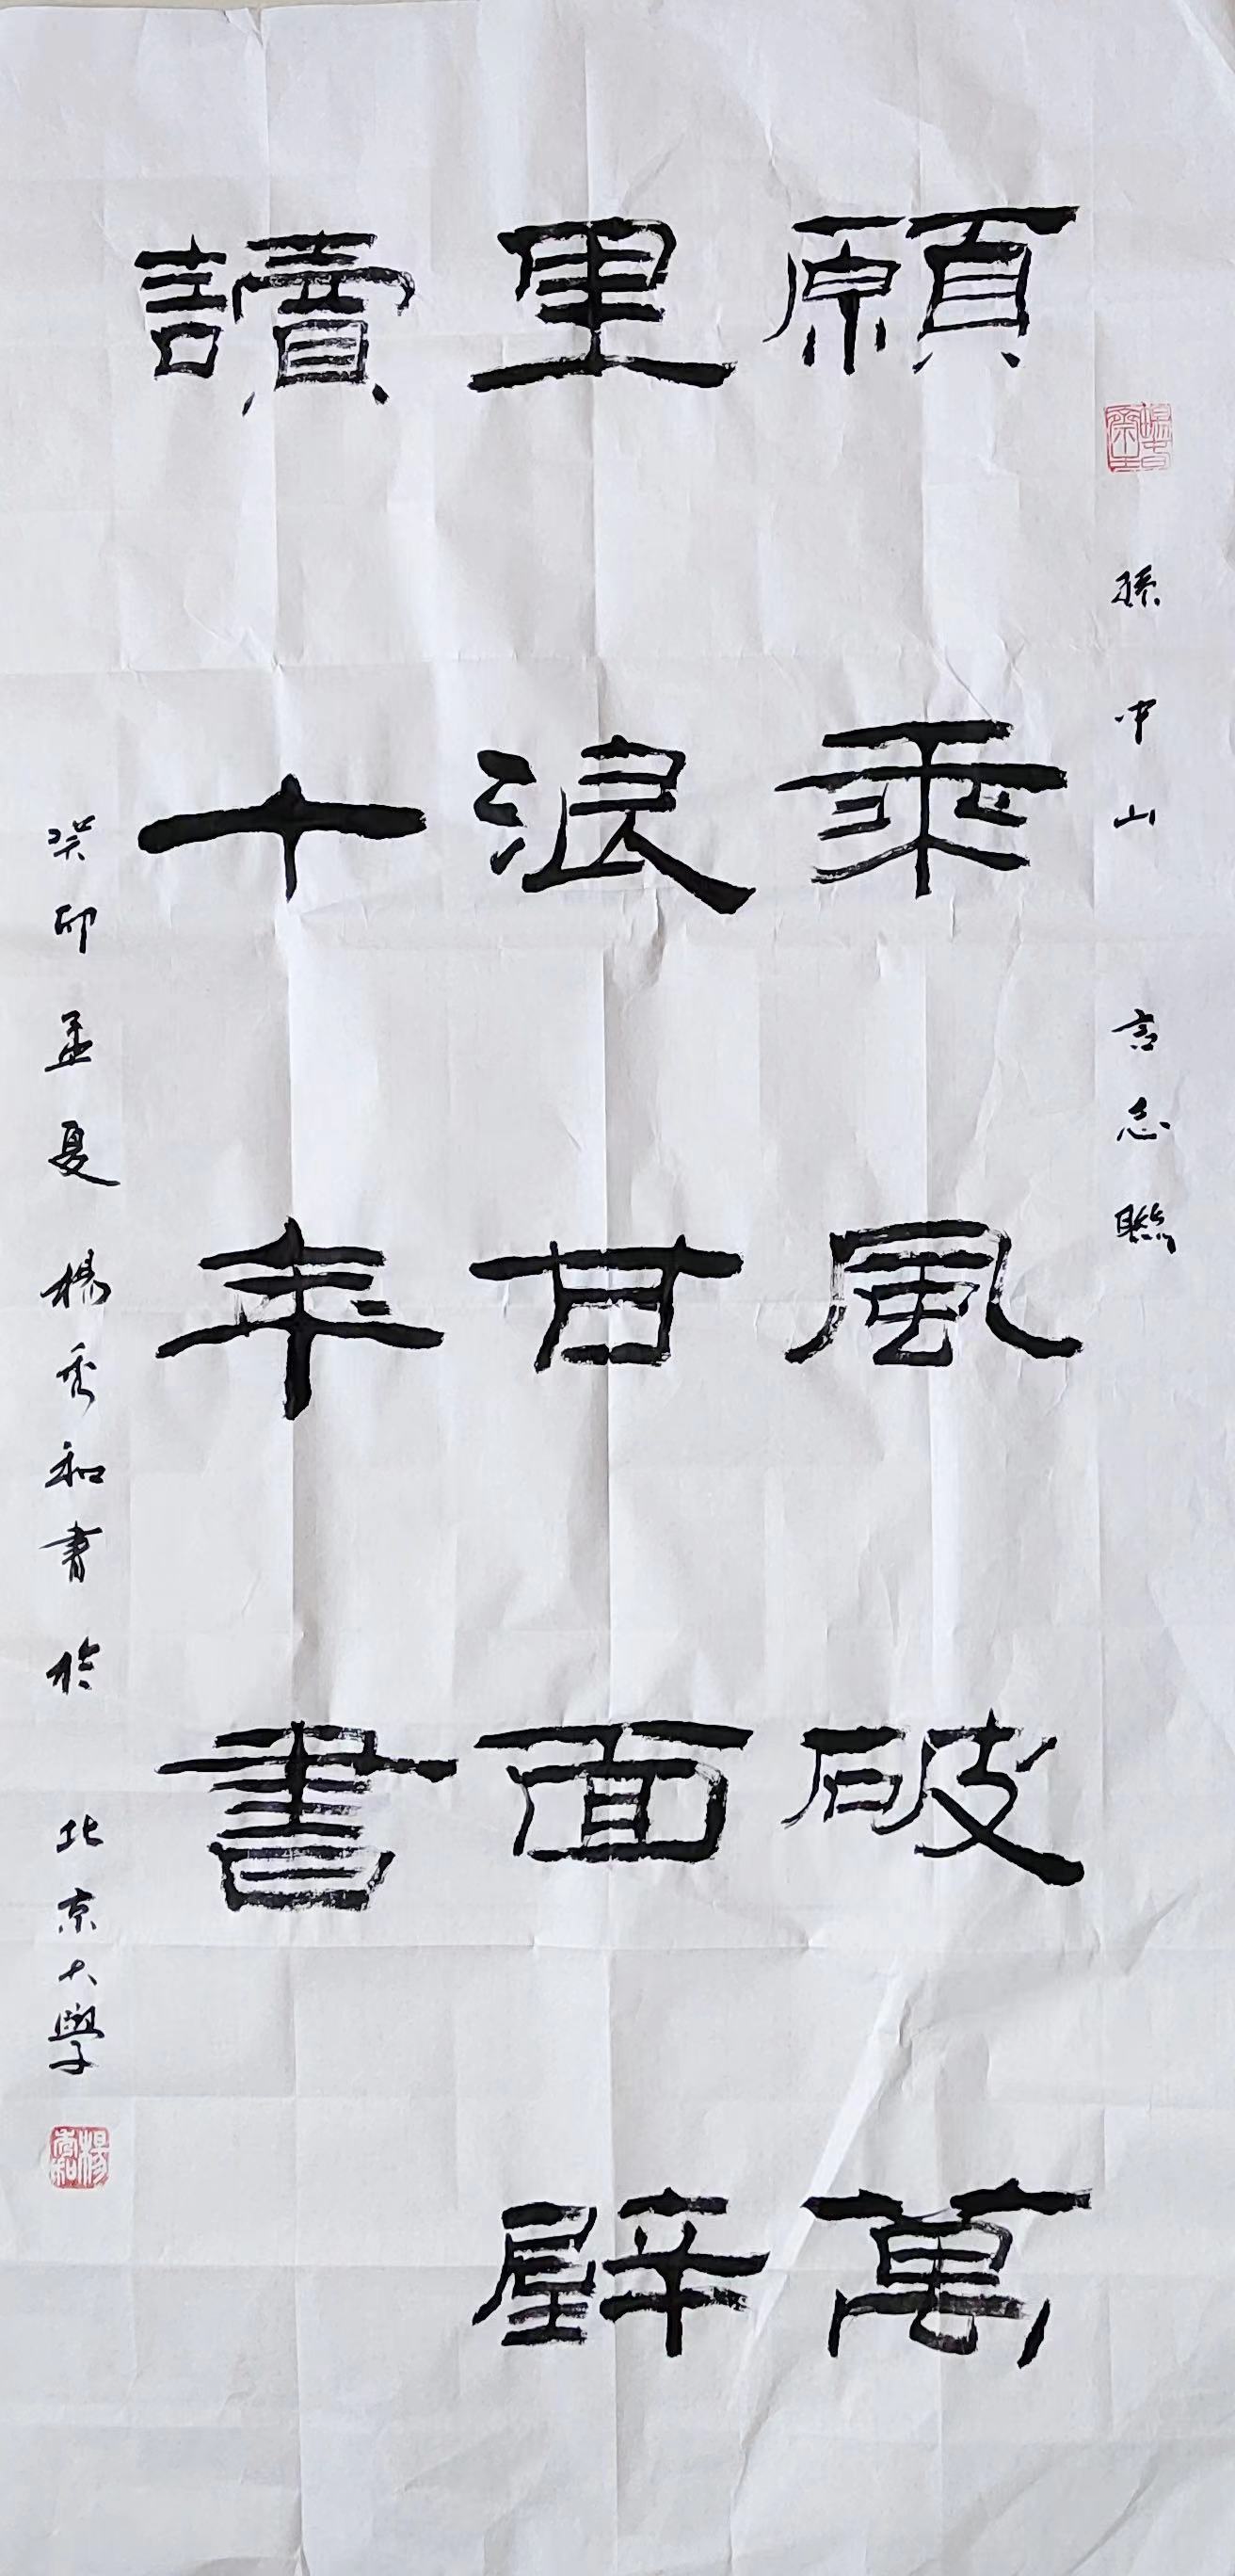 孫中山言志聯
願乘風破萬
里浪甘面壁
讀十年書
癸卯孟夏楊秀和書於北京大學
楊秀和